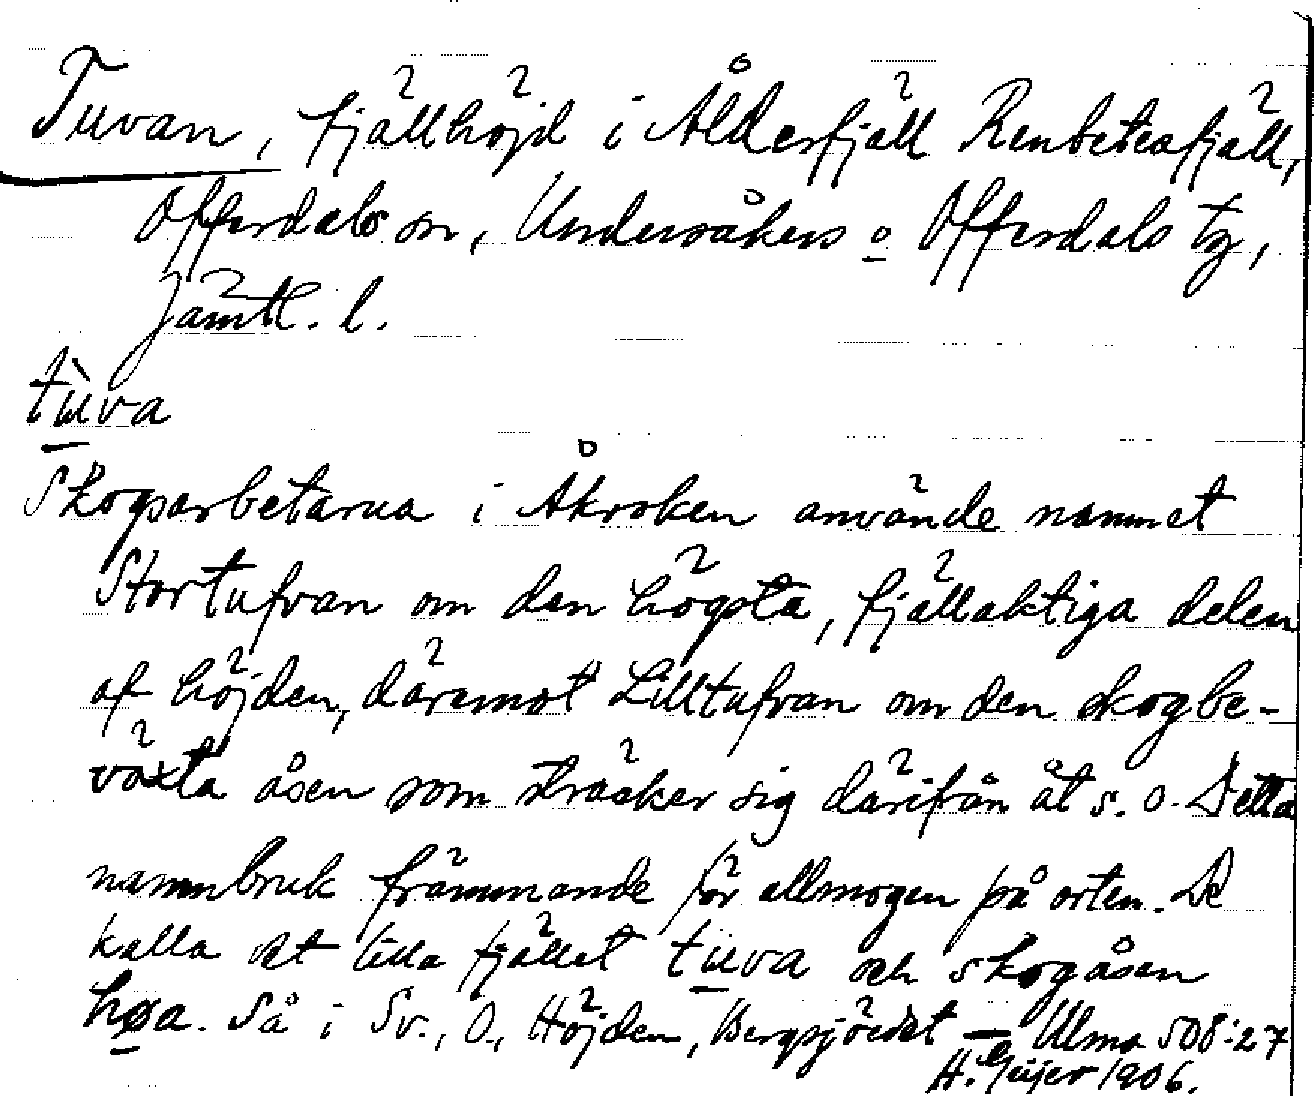 Tuvan, fjällhöjd i Ålderfjäll Renbetesfjäll,
Offerdals sn, Undersåkers o Offerdals tg,
Jämtl. l.
tùva
Skogsarbetarna i Åkroken använde namnet
Stortufvan om den högsta, fjällaktiga delen
af höjden, däremot Lilltufvan om den skogbe-
växta åsen som sträcker sig därifrån åt s. o. Detta
namnbruk främmande för allmogen på orten. De
kalla det lilla fjället tuva och skogåsen
høa. Så i Sv., O., Höjden, Bergsjöedet — Ulma 508:27
H. Geijer 1906.